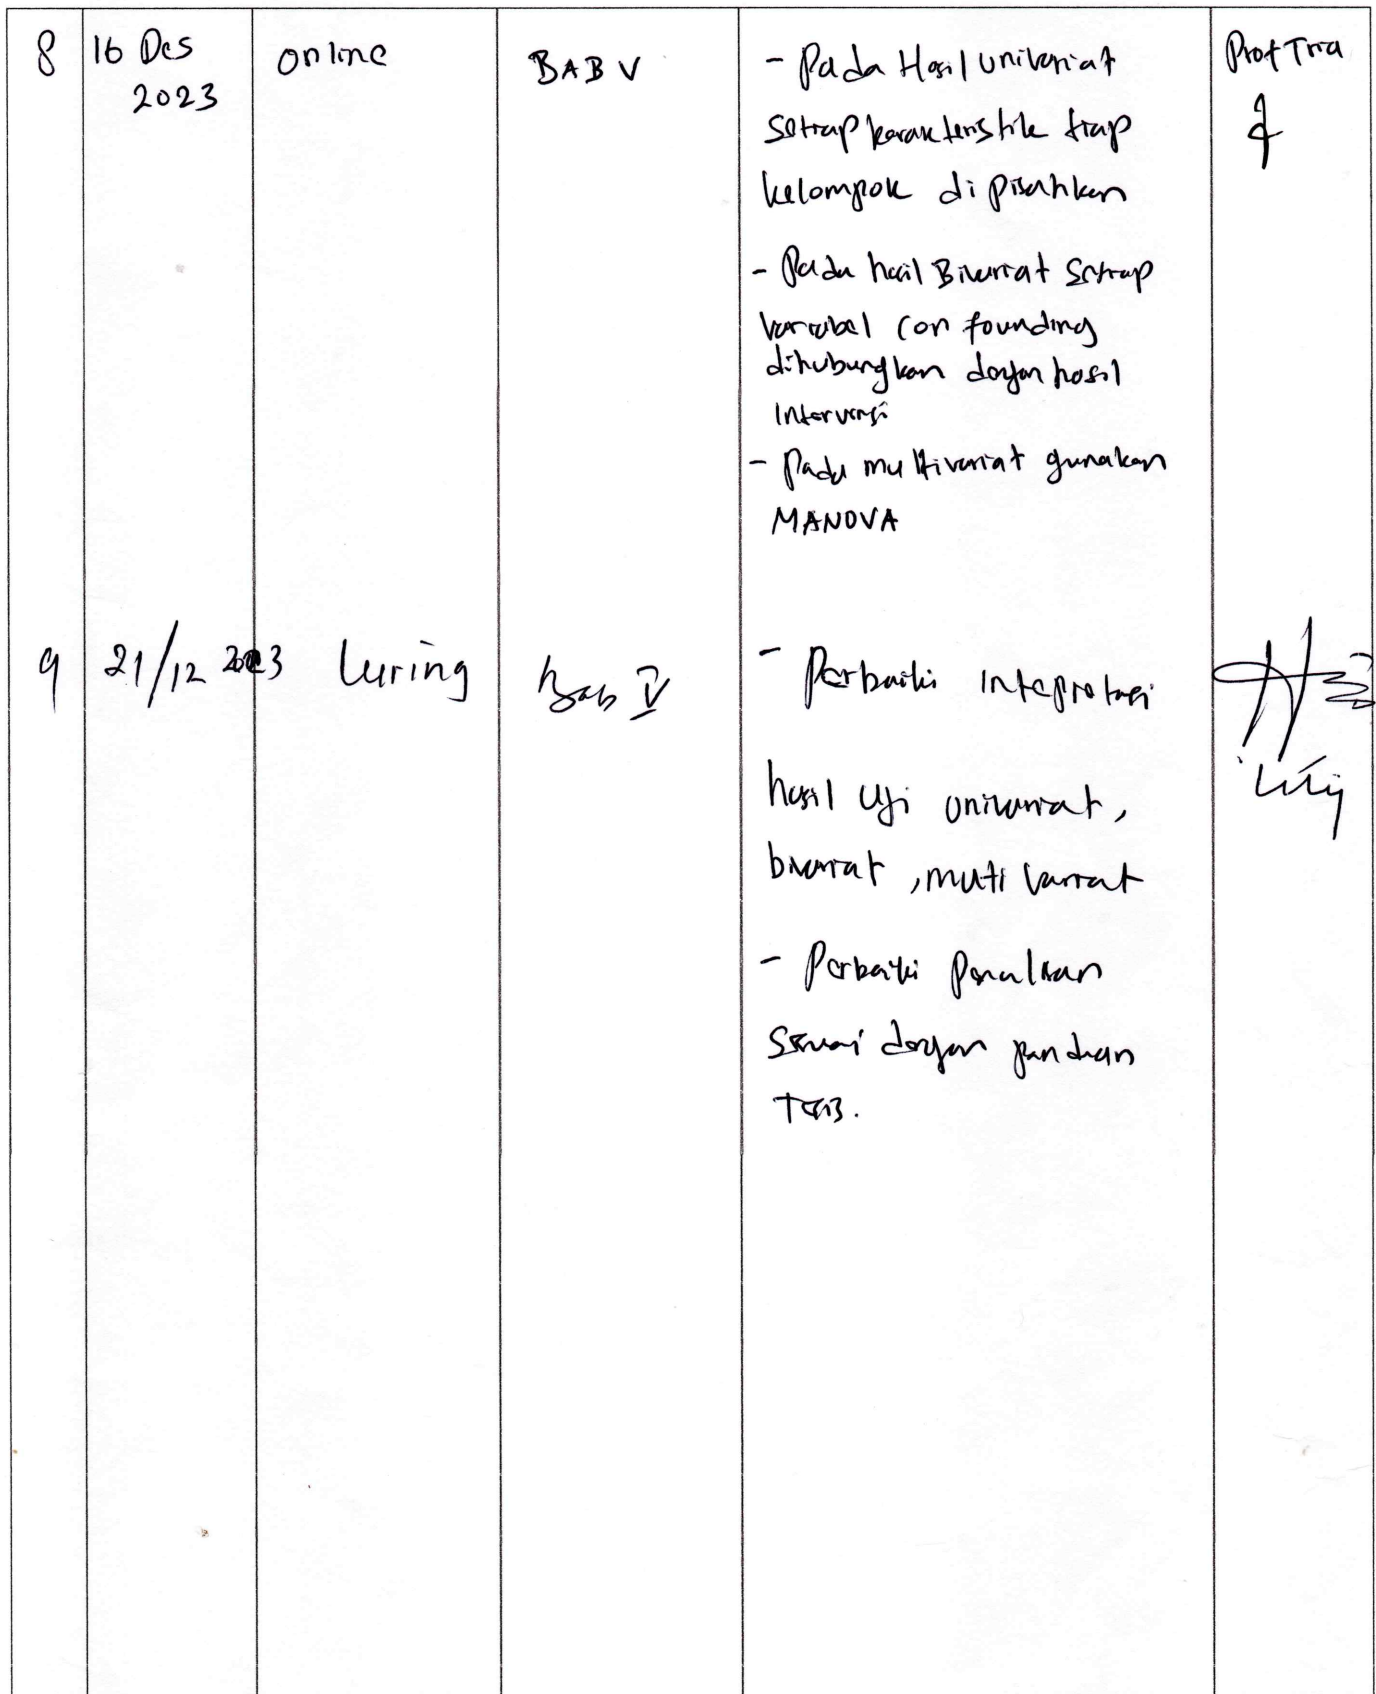 8 16 Des online BAB V - Pada Hasil univariat Prof Tria
2023
setiap karakteristik tiap
kelompok dipisahkan
- Pada hasil Bivariat setiap
variabel confounding
dihubungkan dengan hasil
intervensi
- Pada multivariat gunakan
MANOVA
9 21/12 2023 Luring Bab V - Perbaiki intepretasi
hasil Uji univariat,
bivariat, muti variat
- Perbaiki penulisan
sesuai dengan panduan
Tesis.